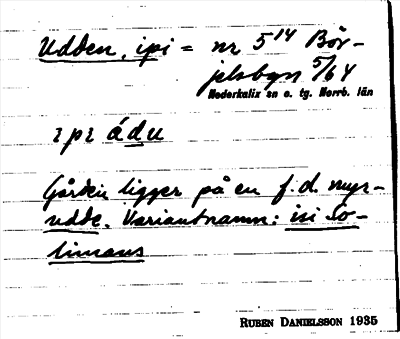 Udden, ipi = nr 5¹⁴ Bör-
jelsbyn 5/64
Nederkalix sn o. tg. Norrb. län
ɪpɪ ádu
Gården ligger på en f.d. myr-
udde. Variantnamn: isi So-
limans
Ruben Danielsson 1935